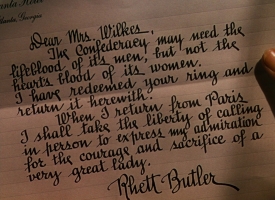 Atlanta, Georgia
Dear Mrs. Wilkes,
The Confederacy may need the
lifeblood of its men, but not the
heart's blood of its women.
I have redeemed your ring and
return it herewith.
When I return from Paris
I shall take the liberty of calling
in person to express my admiration
for the courage and sacrifice of a
very great lady.
Rhett Butler